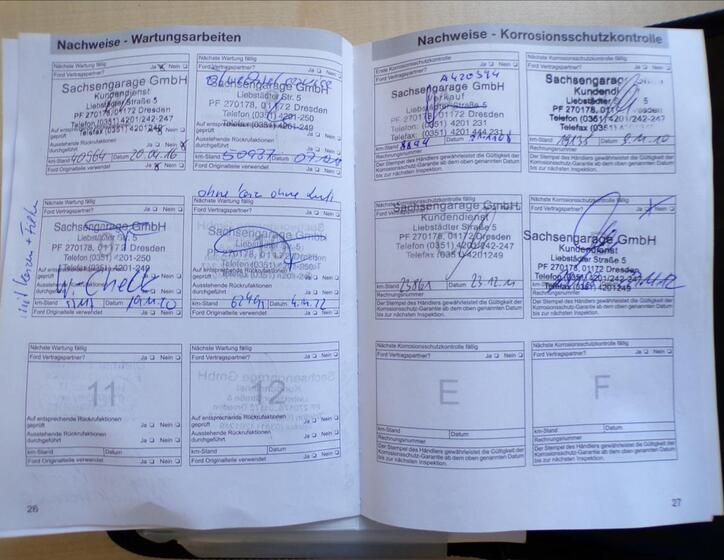 Nachweise - Wartungsarbeiten
Nächste Wartung fällig
Ja Nein
Ford Vertragspartner?
Sachsengarage GmbH
Kundendienst
Liebstädter Straße 5
PF 270178, 01172 Dresden
Telefon (0351) 4201/242-247
Telefax (0351) 4201249
Auf entsprechende Rückrufaktionen
geprüft
Ausstehende Rückrufaktionen
durchgeführt
km-Stand 40964 Datum 20.04.16
Ford Originalteile verwendet Ja Nein
Nächste Wartung fällig
Ford Vertragspartner? Ja Nein
Sachsengarage GmbH
Liebstädter Str. 5
PF 270178, 01172 Dresden
Telefon (0351) 4201-250
Telefax (0351) 4201-249
km-Stand 50937 Datum
Ford Originalteile verwendet Ja Nein
mit Kerzen + Filter
Ford Vertragspartner? Ja Nein
Sachsengarage GmbH
Liebstädter Str. 5
PF 270178, 01172 Dresden
Telefon (0351) 4201-250
Telefax (0351) 4201-249
Ausstehende Rückrufaktionen
durchgeführt
km-Stand Datum
Ford Originalteile verwendet Ja Nein
ohne
Ford Vertragspartner? Ja Nein
Sachsengarage GmbH
Liebstädter Str. 5
PF 270178, 01172 Dresden
Ausstehende Rückrufaktionen
durchgeführt
km-Stand Datum
Ford Originalteile verwendet Ja Nein
Nächste Wartung fällig
Ford Vertragspartner? Ja Nein
11
Auf entsprechende Rückrufaktionen
geprüft Ja Nein
Ausstehende Rückrufaktionen
durchgeführt Ja Nein
km-Stand Datum
Ford Originalteile verwendet Ja Nein
Nächste Wartung fällig
Ford Vertragspartner? Ja Nein
12
Auf entsprechende Rückrufaktionen
geprüft Ja Nein
Ausstehende Rückrufaktionen
durchgeführt Ja Nein
km-Stand Datum
Ford Originalteile verwendet Ja Nein
26
Nachweise - Korrosionsschutzkontrolle
Erste Korrosionsschutzkontrolle fällig
Ford Vertragspartner? Ja Nein
Sachsengarage GmbH
Verkauf
Liebstädter Straße 5
PF 270178, 01172 Dresden
Telefon: (0351) 4201 231
Telefax: (0351)
km-Stand Datum
Rechnungsnummer
Der Stempel des Händlers gewährleistet die Gültigkeit der
Korrosions-Garantie ab dem oben genannten Datum
bis zur nächsten Inspektion.
Nächste Korrosionsschutzkontrolle fällig
Ford Vertragspartner? Ja Nein
Sachsengarage GmbH
Kundendienst
Liebstädter 5
PF 270178, 01172 Dresden
Rechnungsnummer
Der Stempel des Händlers gewährleistet die Gültigkeit der
Korrosions-Garantie ab dem oben genannten Datum
bis zur nächsten Inspektion.
Nächste Korrosionsschutzkontrolle fällig
Sachsengarage GmbH
Kundendienst
Liebstädter Straße 5
PF 270178, 01172 Dresden
Telefon (0351) 4201/242-247
Telefax (0351) 4201249
km-Stand 23861 Datum 23.12.11
Rechnungsnummer
Der Stempel des Händlers gewährleistet die Gültigkeit der
Korrosions-Garantie ab dem oben genannten Datum
bis zur nächsten Inspektion.
Nächste Korrosionsschutzkontrolle fällig
Ford Vertragspartner? Ja Nein
Sachsengarage GmbH
Kundendienst
Liebstädter Straße 5
PF 270178, 01172 Dresden
Telefon (0351) 4201/242-247
Telefax (0351) 4201249
Rechnungsnummer
Der Stempel des Händlers gewährleistet die Gültigkeit der
Korrosions-Garantie ab dem oben genannten Datum
bis zur nächsten Inspektion.
Nächste Korrosionsschutzkontrolle fällig
Ford Vertragspartner? Ja Nein
E
km-Stand Datum
Rechnungsnummer
Der Stempel des Händlers gewährleistet die Gültigkeit der
Korrosions-Garantie ab dem oben genannten Datum
bis zur nächsten Inspektion.
Nächste Korrosionsschutzkontrolle fällig
Ford Vertragspartner? Ja Nein
F
km-Stand Datum
Rechnungsnummer
Der Stempel des Händlers gewährleistet die Gültigkeit der
Korrosions-Garantie ab dem oben genannten Datum
bis zur nächsten Inspektion.
27